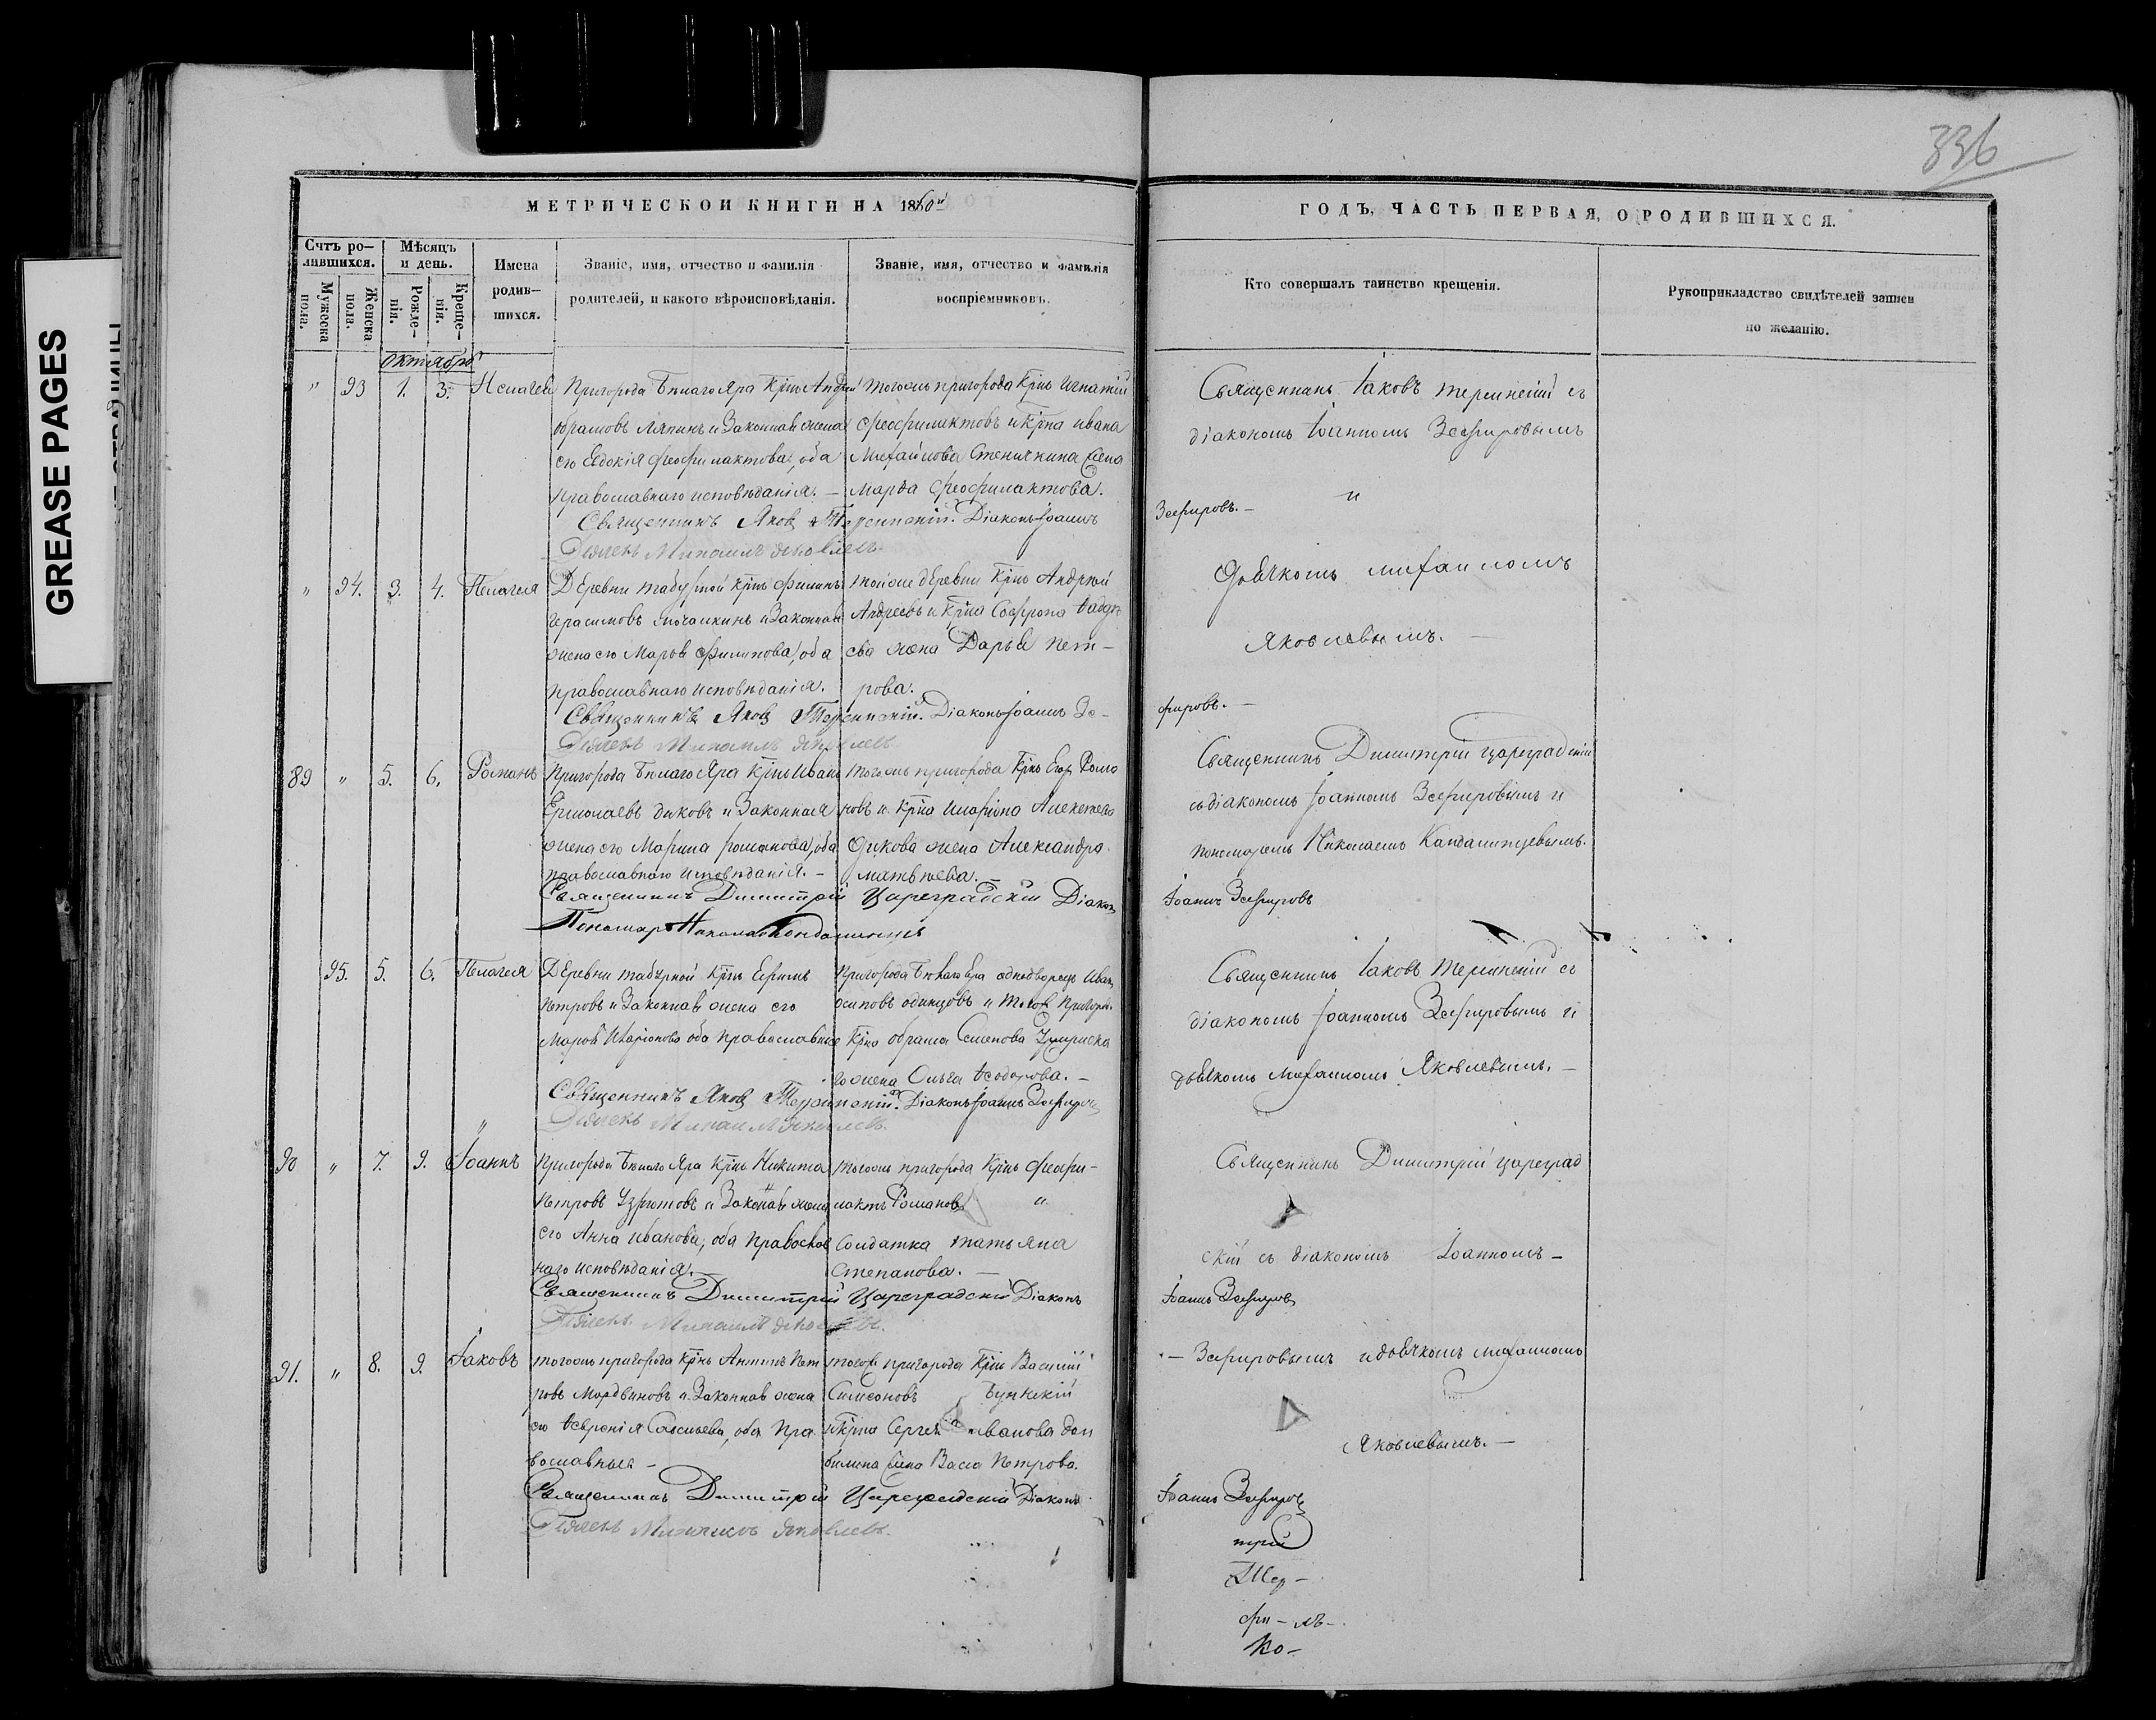 336
МЕТРИЧЕСКОЙ КНИГИ НА 1860й
ГОДЪ, ЧАСТЬ ПЕРВАЯ, О РОДИВШИХСЯ.
Счтъ ро-
дившихся.
Мужеска
пола.
Женска
пола.
Мѣсяцъ
и день.
Рожде-
нія.
Креще-
нія.
Имена
родив-
шихся.
Званіе, имя, отчество и фамилія
родителей, и какого вѣроисповѣданія.
Званіе, имя, отчество и фамилія
воспріемниковъ.
Кто совершалъ таинство крещенія.
Рукоприкладство свидѣтелей записи
по желанію.
Октябрь
" 93 1. 3. Пелагея
Пригорода Бѣлаго Яра Крнъ Андрей
Абрамовъ Ляпинъ и Законная жена
его Евдокія Феофилактова, оба
православнаго исповѣданія. —
Тогожъ пригорода Крнъ Игнатій
Феофилактовъ и Крна Ивана
Михайлова жена
Марѳа Феофилактова.
Священникъ Яковъ Діаконъ Іоаннъ
Зефировъ. —
Дьячекъ Михаилъ Яковлевъ.
Священникъ Іаковъ съ
діакономъ Іоанномъ Зефировымъ
и
Дьячкомъ Михаиломъ
Яковлевымъ. —
" 94. 3. 4. Пелагея
Деревни Крнъ Филипъ
Герасимовъ и Законная
жена его Марѳа Филипова, оба
православнаго исповѣданія.
Тойже деревни Крнъ Андрей
Андреевъ и Крна Софрона Ѳадѣ-
ева жена Дарья Пет-
рова.
Священникъ Яковъ Діаконъ Іоаннъ Зе-
фировъ. —
Дьячекъ Михаилъ Яковлевъ
89 " 5. 6. Романъ
Пригорода Бѣлаго Яра Крнъ Иванъ
Ермолаевъ Диковъ и Законная
жена его Марина Романова, оба
православнаго исповѣданія. —
Тогожъ пригорода Крнъ Егоръ Рома
новъ и Крна Иларіона Алексѣева
Дикова жена Александра
Матвѣева. —
Священникъ Димитрій Цареградскій Діаконъ
Іоаннъ Зефировъ
Пономарь Николай
Священникъ Димитрій Цареградскій
съ діакономъ Іоанномъ Зефировымъ и
пономаремъ Николаемъ
95. 5. 6. Пелагея
Деревни Крнъ Ефимъ
Петровъ и Законная жена его
Марѳа Иларіонова оба православные
Пригорода Бѣлаго Яра однодворецъ Иванъ
Осиповъ Одинцовъ и того Пригоро-
Крна Абрама Семенова
го жена Ольга Ѳеодорова. —
Священникъ Яковъ Діаконъ Іоаннъ Зефировъ
Дьячекъ Михаилъ Яковлевъ.
Священникъ Іаковъ съ
діакономъ Іоанномъ Зефировымъ и
дьячкомъ Михаиломъ Яковлевымъ. —
90 " 7. 9. Іоаннъ
Пригорода Бѣлаго Яра Крнъ Никита
Петровъ и Законная жена
его Анна Иванова, оба Православ
наго исповѣданія. —
Тогожъ пригорода Крнъ Феофи-
лактъ Романовъ и
Солдатка Татьяна
Степанова. —
Священникъ Димитрій Цареградскій Діаконъ
Іоаннъ Зефировъ
Дьячекъ Михаилъ Яковлевъ.
Священникъ Димитрій Цареград
скій съ діакономъ Іоанномъ —
91. " 8. 9. Іаковъ
Тогожъ пригорода Крнъ Антипъ Пет
ровъ Мордвиновъ и Законная жена
его Ѳевронія Савельева, оба Пра
вославные —
Тогож пригорода Крнъ Василій
Симеоновъ
и Крна Сергея Иванова
жена Васса Петрова.
Священникъ Димитрій Цареградскій Діаконъ
Іоаннъ Зефировъ
Дьячекъ Михаилъ Яковлевъ.
— Зефировымъ и дьячкомъ Михаиломъ
Яковлевымъ. —
трій
фи-лъ-
Ко-
GREASE PAGES